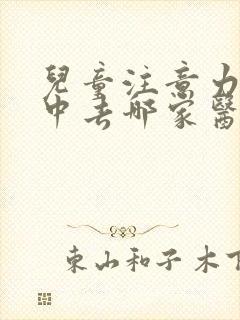 兒童注意力
中去哪家醫
東山和子木下